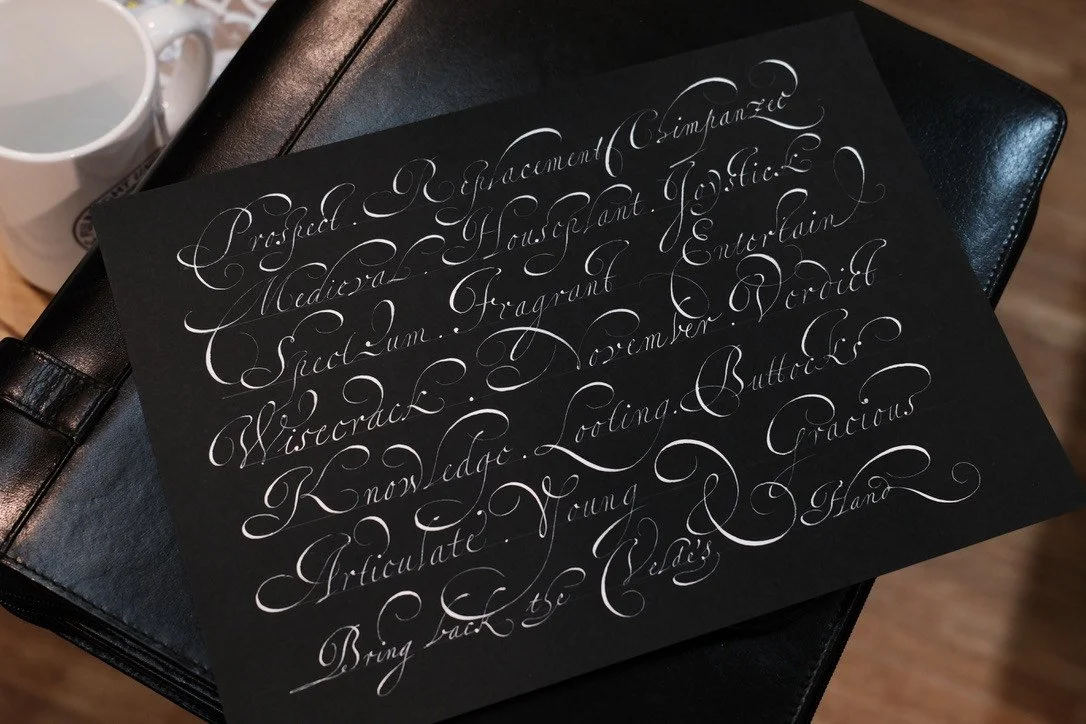 Prospect. Replacement Chimpanzee
Medieval. Houseplant. Joystick
Spectrum. Fragrant Entertain
Wisecrack. November. Verdict
Knowledge. Looting. Buttocks
Articulate. Young & Gracious
Bring back the Velde's Hand